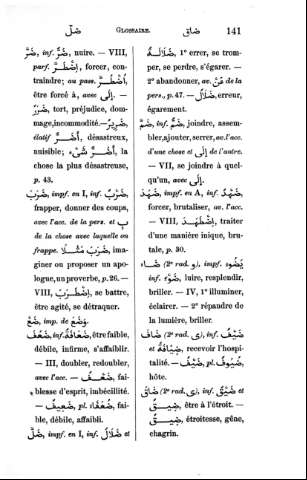 ضلّ GLOSSAIRE. ضاق 141
ضَرَّ, inf. ضُرّ, nuire. — VIII,
parf. إِضْطَرَّ, forcer, con-
traindre; au pass. أُضْطُرَّ,
être forcé à, avec إِلَى. —
ضَرَر, tort, préjudice, dom-
mage, incommodité. — ضَرِير,
élatif أَضَرّ, désastreux,
nuisible; أَضَرّ شَىْء, la
chose la plus désastreuse,
p. 43.
ضَرَبَ, impf. en I, inf. ضَرْب,
frapper, donner des coups,
avec l'acc. de la pers. et بِ
de la chose avec laquelle on
frappe. ضَرَبَ مَثَلًا, ima-
giner ou proposer un apo-
logue, un proverbe, p. 26. —
VIII, إِضْطَرَبَ, se battre,
être agité, se détraquer.
ضَعْ, imp. de وَضَعَ.
ضَعُفَ, inf. ضَعَافَة, être faible,
débile, infirme, s'affaiblir.
— III, doubler, redoubler,
avec l'acc. — ضَعْف, fai-
blesse d'esprit, imbécilité.
— ضَعِيف, pl. ضُعَفَاء, fai-
ble, débile, affaibli.
ضَلَّ, impf. en I, inf. ضَلَال et
ضَلَالَة, 1° errer, se trom-
per, se perdre, s'égarer. —
2° abandonner, av. عَنْ de la
pers., p. 47. — ضَلَال, erreur,
égarement.
ضَمَّ, inf. ضَمّ, joindre, assem-
bler, ajouter, serrer, av. l'acc.
d'une chose et إِلَى de l'autre.
— VII, se joindre à quel-
qu'un, avec إِلَى.
ضَهَدَ, impf. en A, inf. ضَهْد,
forcer, brutaliser, av. l'acc.
— VIII, إِضْطَهَدَ, traiter
d'une manière inique, bru-
tale, p. 30.
ضَاءَ (2e rad. و), impf. يَضُوءُ,
inf. ضَوْء, luire, resplendir,
briller. — IV, 1° illuminer,
éclairer. — 2° répandre de
la lumière, briller.
ضَافَ (2e rad. ى), inf. ضَيْف
et ضِيَافَة, recevoir l'hospi-
talité. — ضَيْف, pl. ضُيُوف,
hôte.
ضَاقَ (2e rad. ى), inf. ضَيْق et
ضِيق, être à l'étroit. —
ضِيق, étroitesse, gêne,
chagrin.